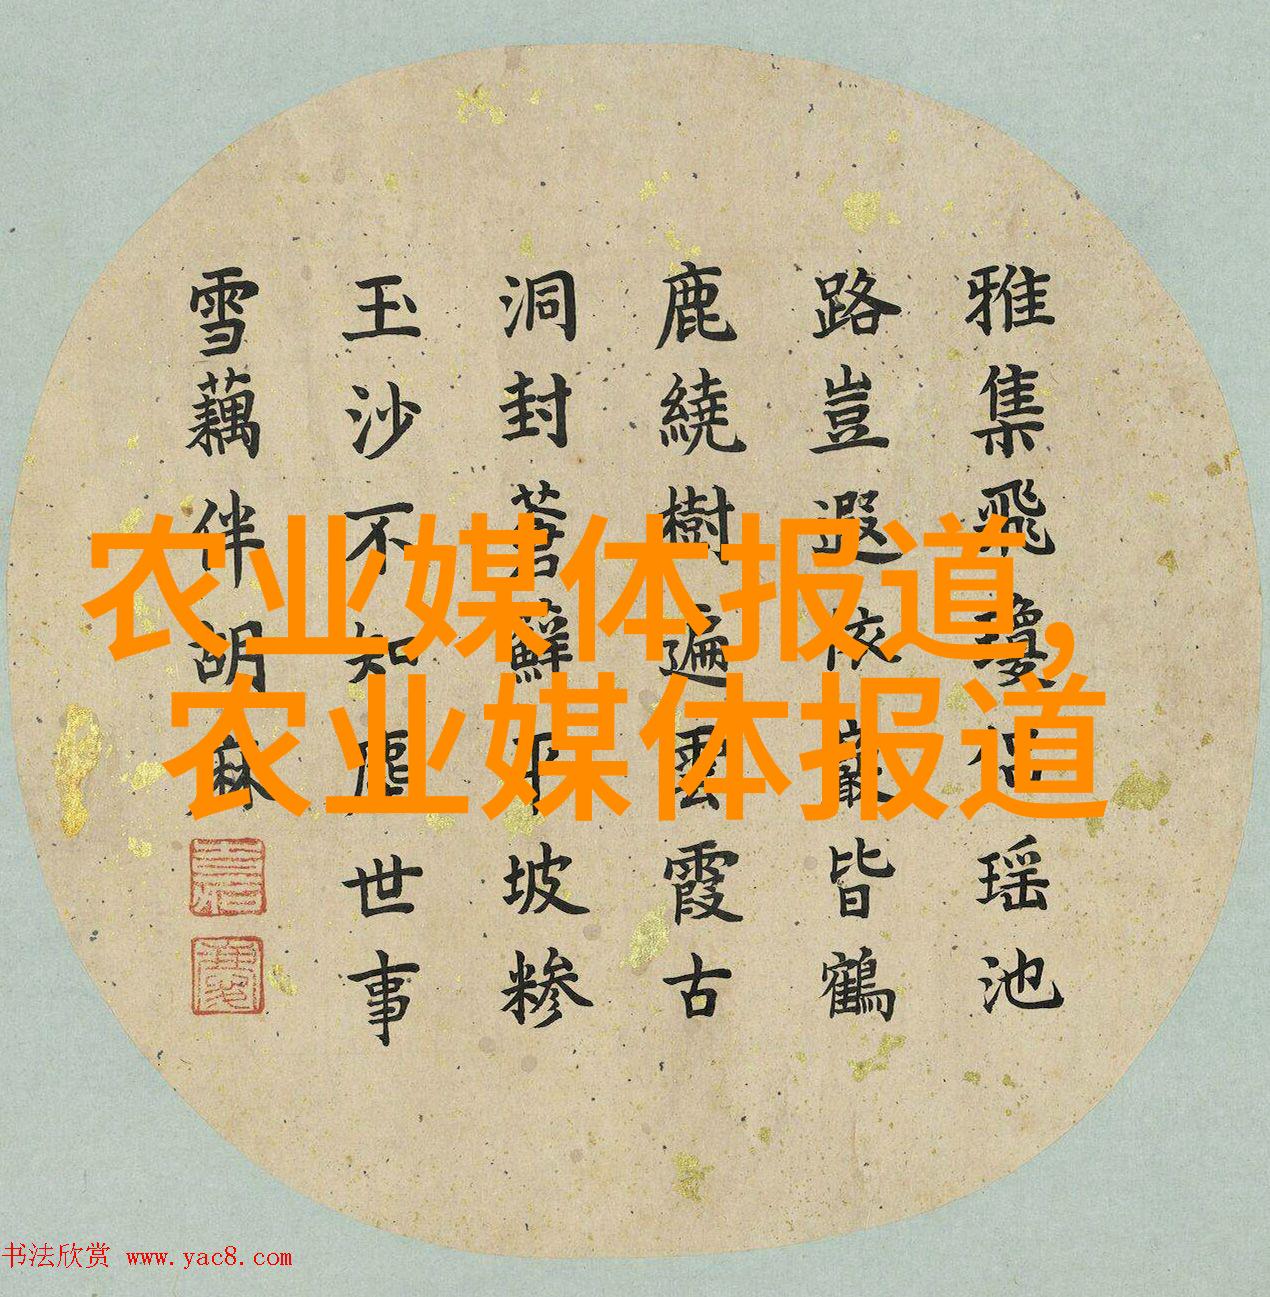 农业媒体报道,
农业媒体报道
雅集飛瓊侶瑶池
路豈遐依巖皆鶴
鹿繞樹遍雲霞古
洞封蘚平坡糁
玉沙不知塵世事
雪藕伴胡麻
书法欣赏 www.yac8.com